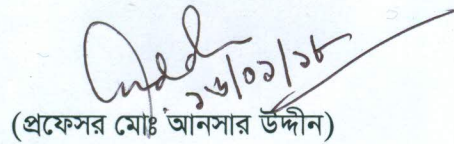 ১৬/০১/১৮
(প্রফেসর মোঃ আনসার উদ্দীন)